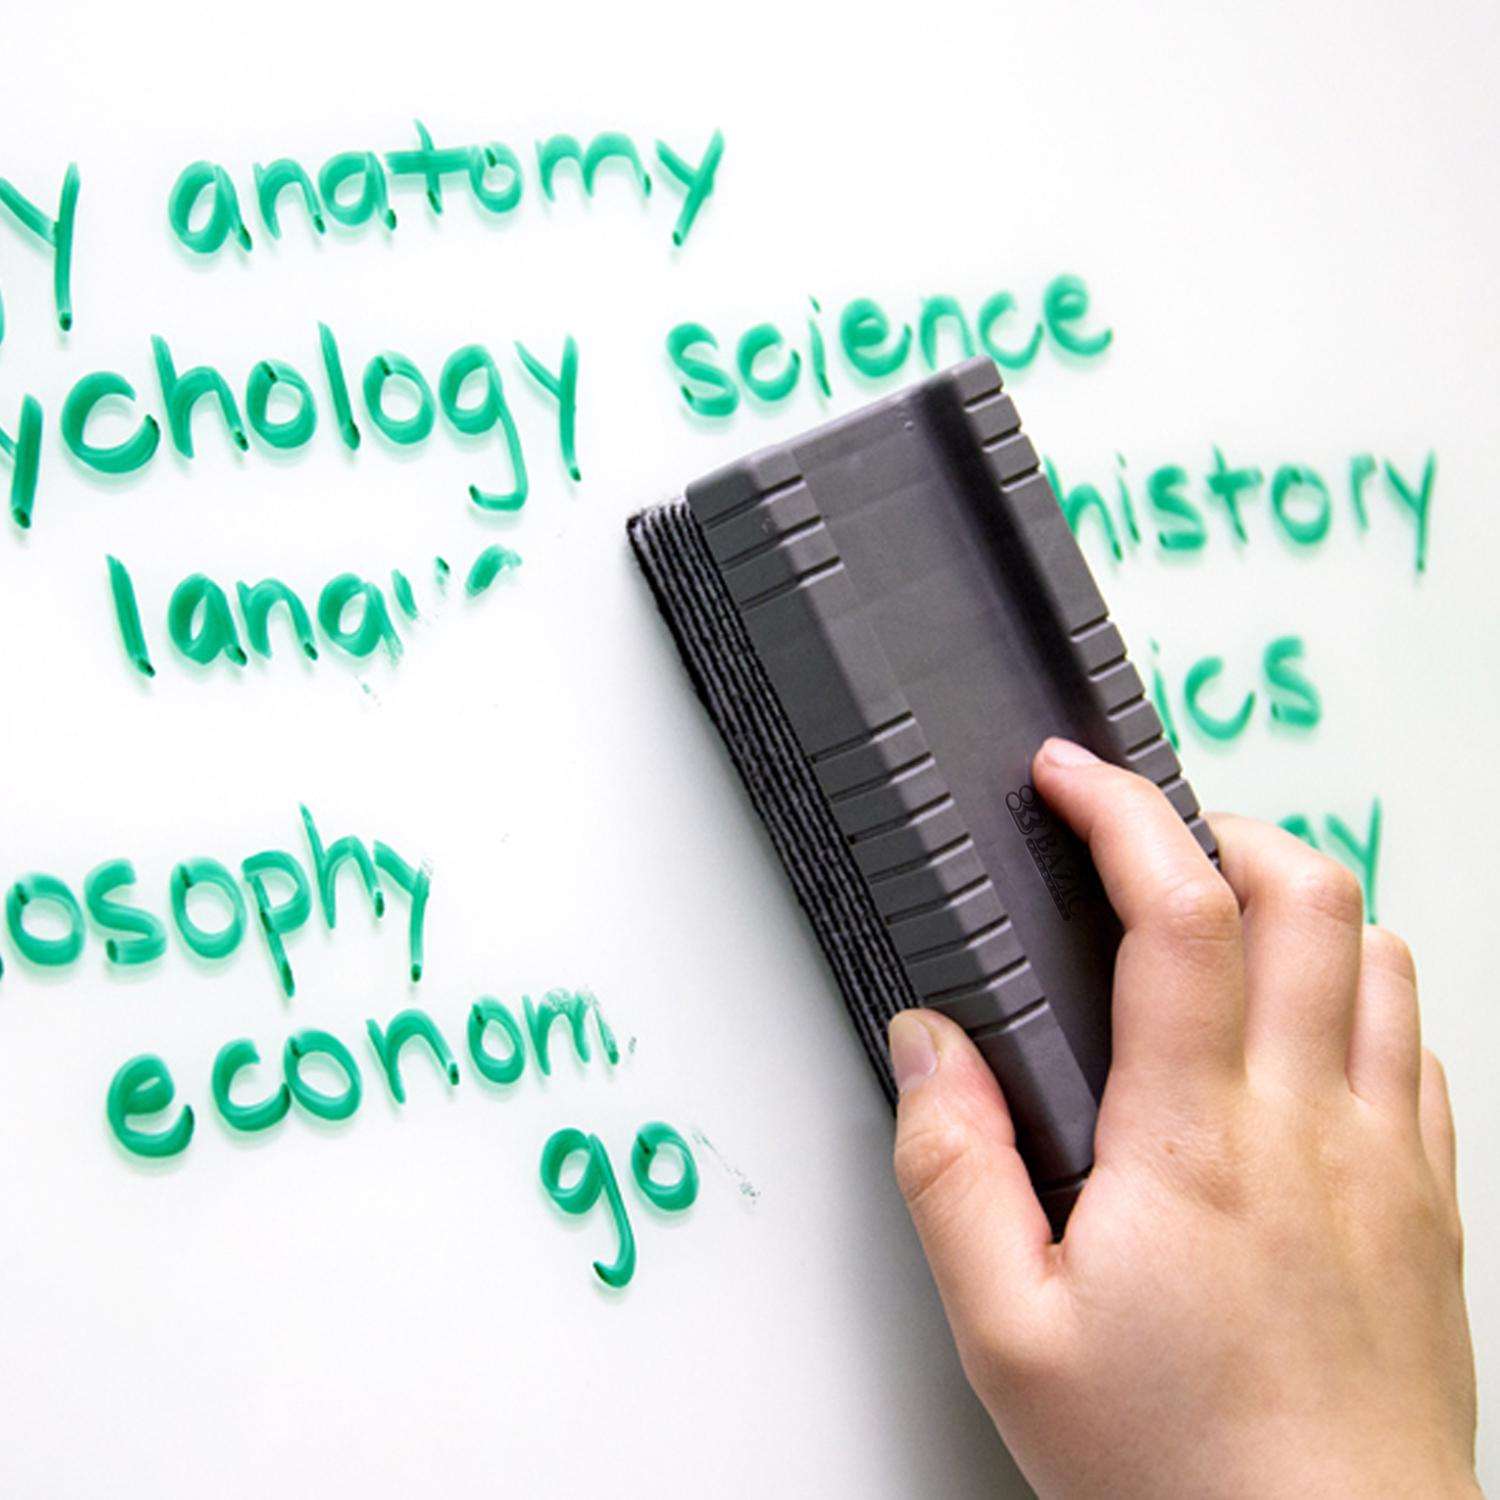 y anatomy
ychology science
history
langu
ics
osophy
y
econom
go
BAZIC